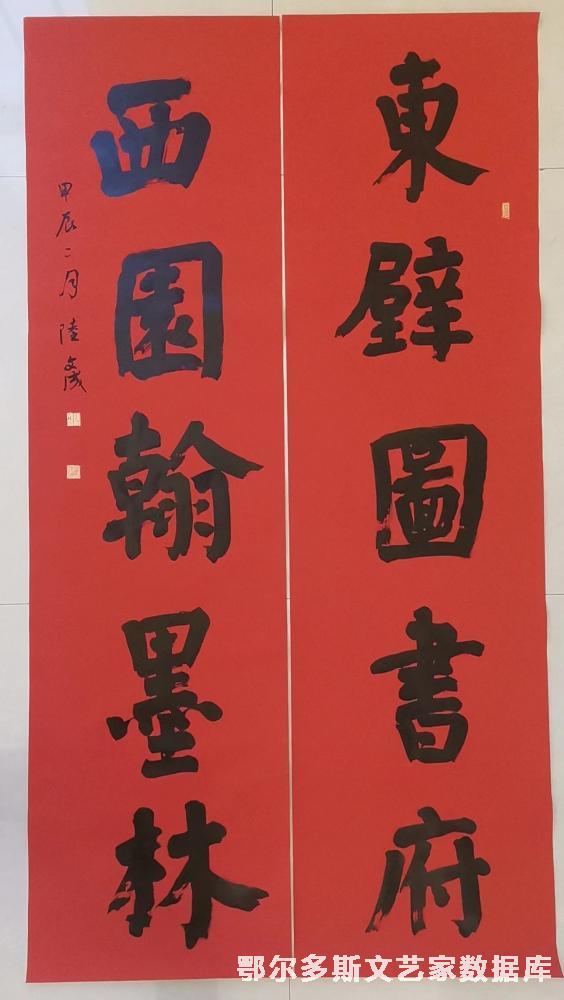 東壁圖書府
西園翰墨林
甲辰二月 陸
鄂尔多斯文艺家数据库